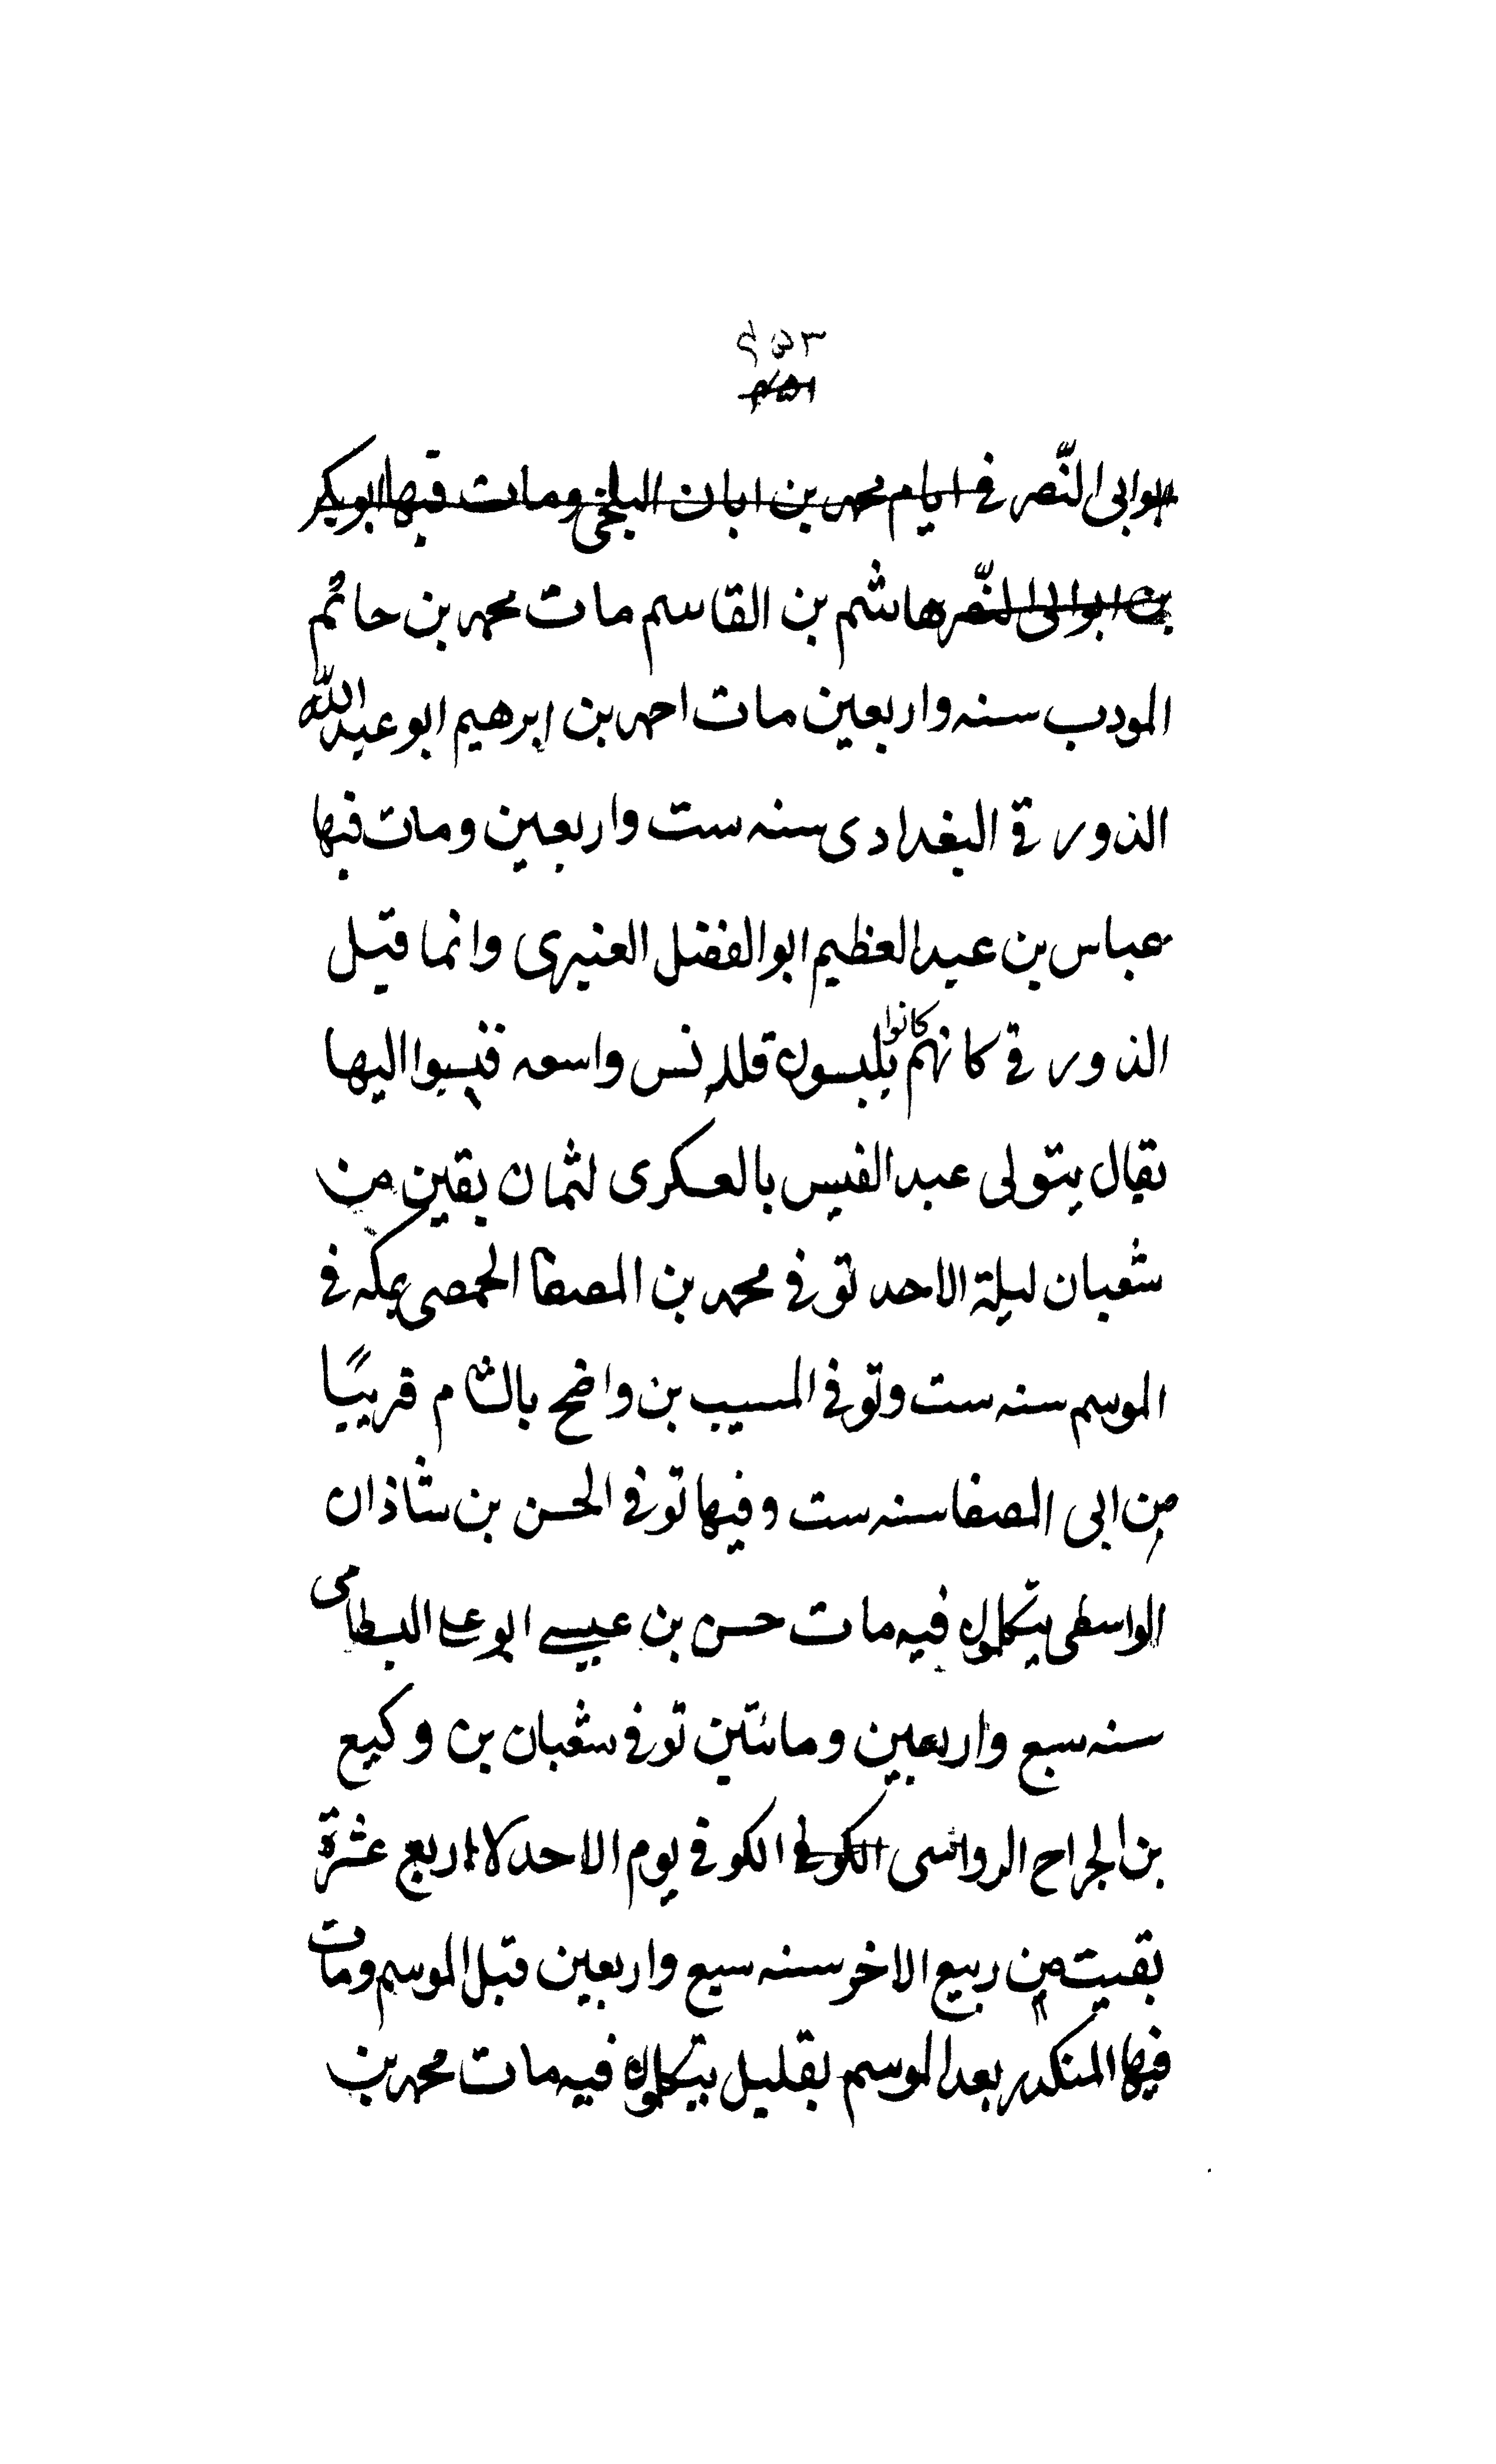 ٤٥٣
٤٥١
بوابى النّصر فى ايام محمد بن ابان البلخى ومات فيها ابو بكر
بن ابوا لى النّصر هاشم بن القاسم مات محمد بن حاتم
المودب سنه واربعين مات احمد بن ابرهيم ابو عبد الله
الذور قى البغدادى سنه ست واربعين ومات فيها
عباس بن عبد العظيم ابو الفضل العنبرى وانما قيل
الذور قى كانهم كانوا يلبسون قلانس واسعه فنسبوا اليها
يقال يتولى عبد القيس بالعسكرى لثمان بقين من
شعبان ليلة الاحد توفى محمد بن المصفا الحمصى بمكه فى
الموسم سنه ست وتوفى المسيب بن واضح بالشام قريبًا
من ابى المصفا سنه ست وفيها توفى الحسن بن شاذان
الواسطى يتكلمون فيه مات حسن بن عيسى ابو على البسطامى
سنه سبع واربعين ومائتين توفى سفيان بن وكيع
بن الجراح الرواسى الكوفى الكوفى يوم الاحد لاربع عشرة
بقيت من ربيع الاخر سنه سبع واربعين قبل الموسم ومات
فيها المنكدر بعد الموسم بقليل يتكلمون فيه مات محمد بن